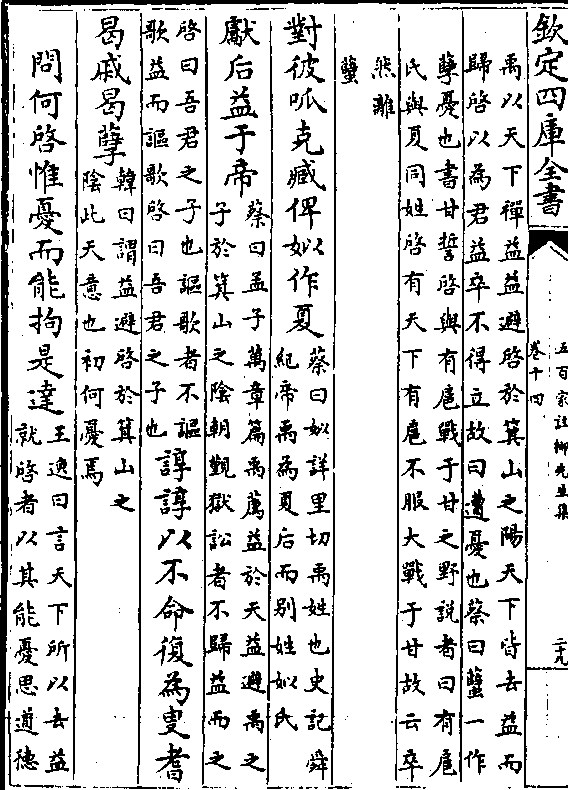 欽定四庫全書
五百家註柳先生集
卷十四
二十九
禹以天下禪益益避啓於箕山之陽天下皆去益而
歸啓以為君益卒不得立故曰遭憂也蔡曰蠥一作
孽憂也書甘誓啓與有扈戰于甘之野説者曰有扈
氏與夏同姓啓有天下有扈不服大戰于甘故云卒
然離
蠥
對彼呱克臧俾姒作夏
蔡曰姒詳里切禹姓也史記舜
紀帝禹為夏后而别姓姒氏
獻后益于帝
蔡曰孟子萬章篇禹薦益於天益避禹之
子於箕山之陰朝覲獄訟者不歸益而之
啓曰吾君之子也謳歌者不謳
歌益而謳歌啓曰吾君之子也
諄諄以不命復為叟耆
曷戚曷孽
韓曰謂益避啓於箕山之
陰此天意也初何憂焉
問何啓惟憂而能拘是達
王逸曰言天下所以去益
就啓者以其能憂思道德